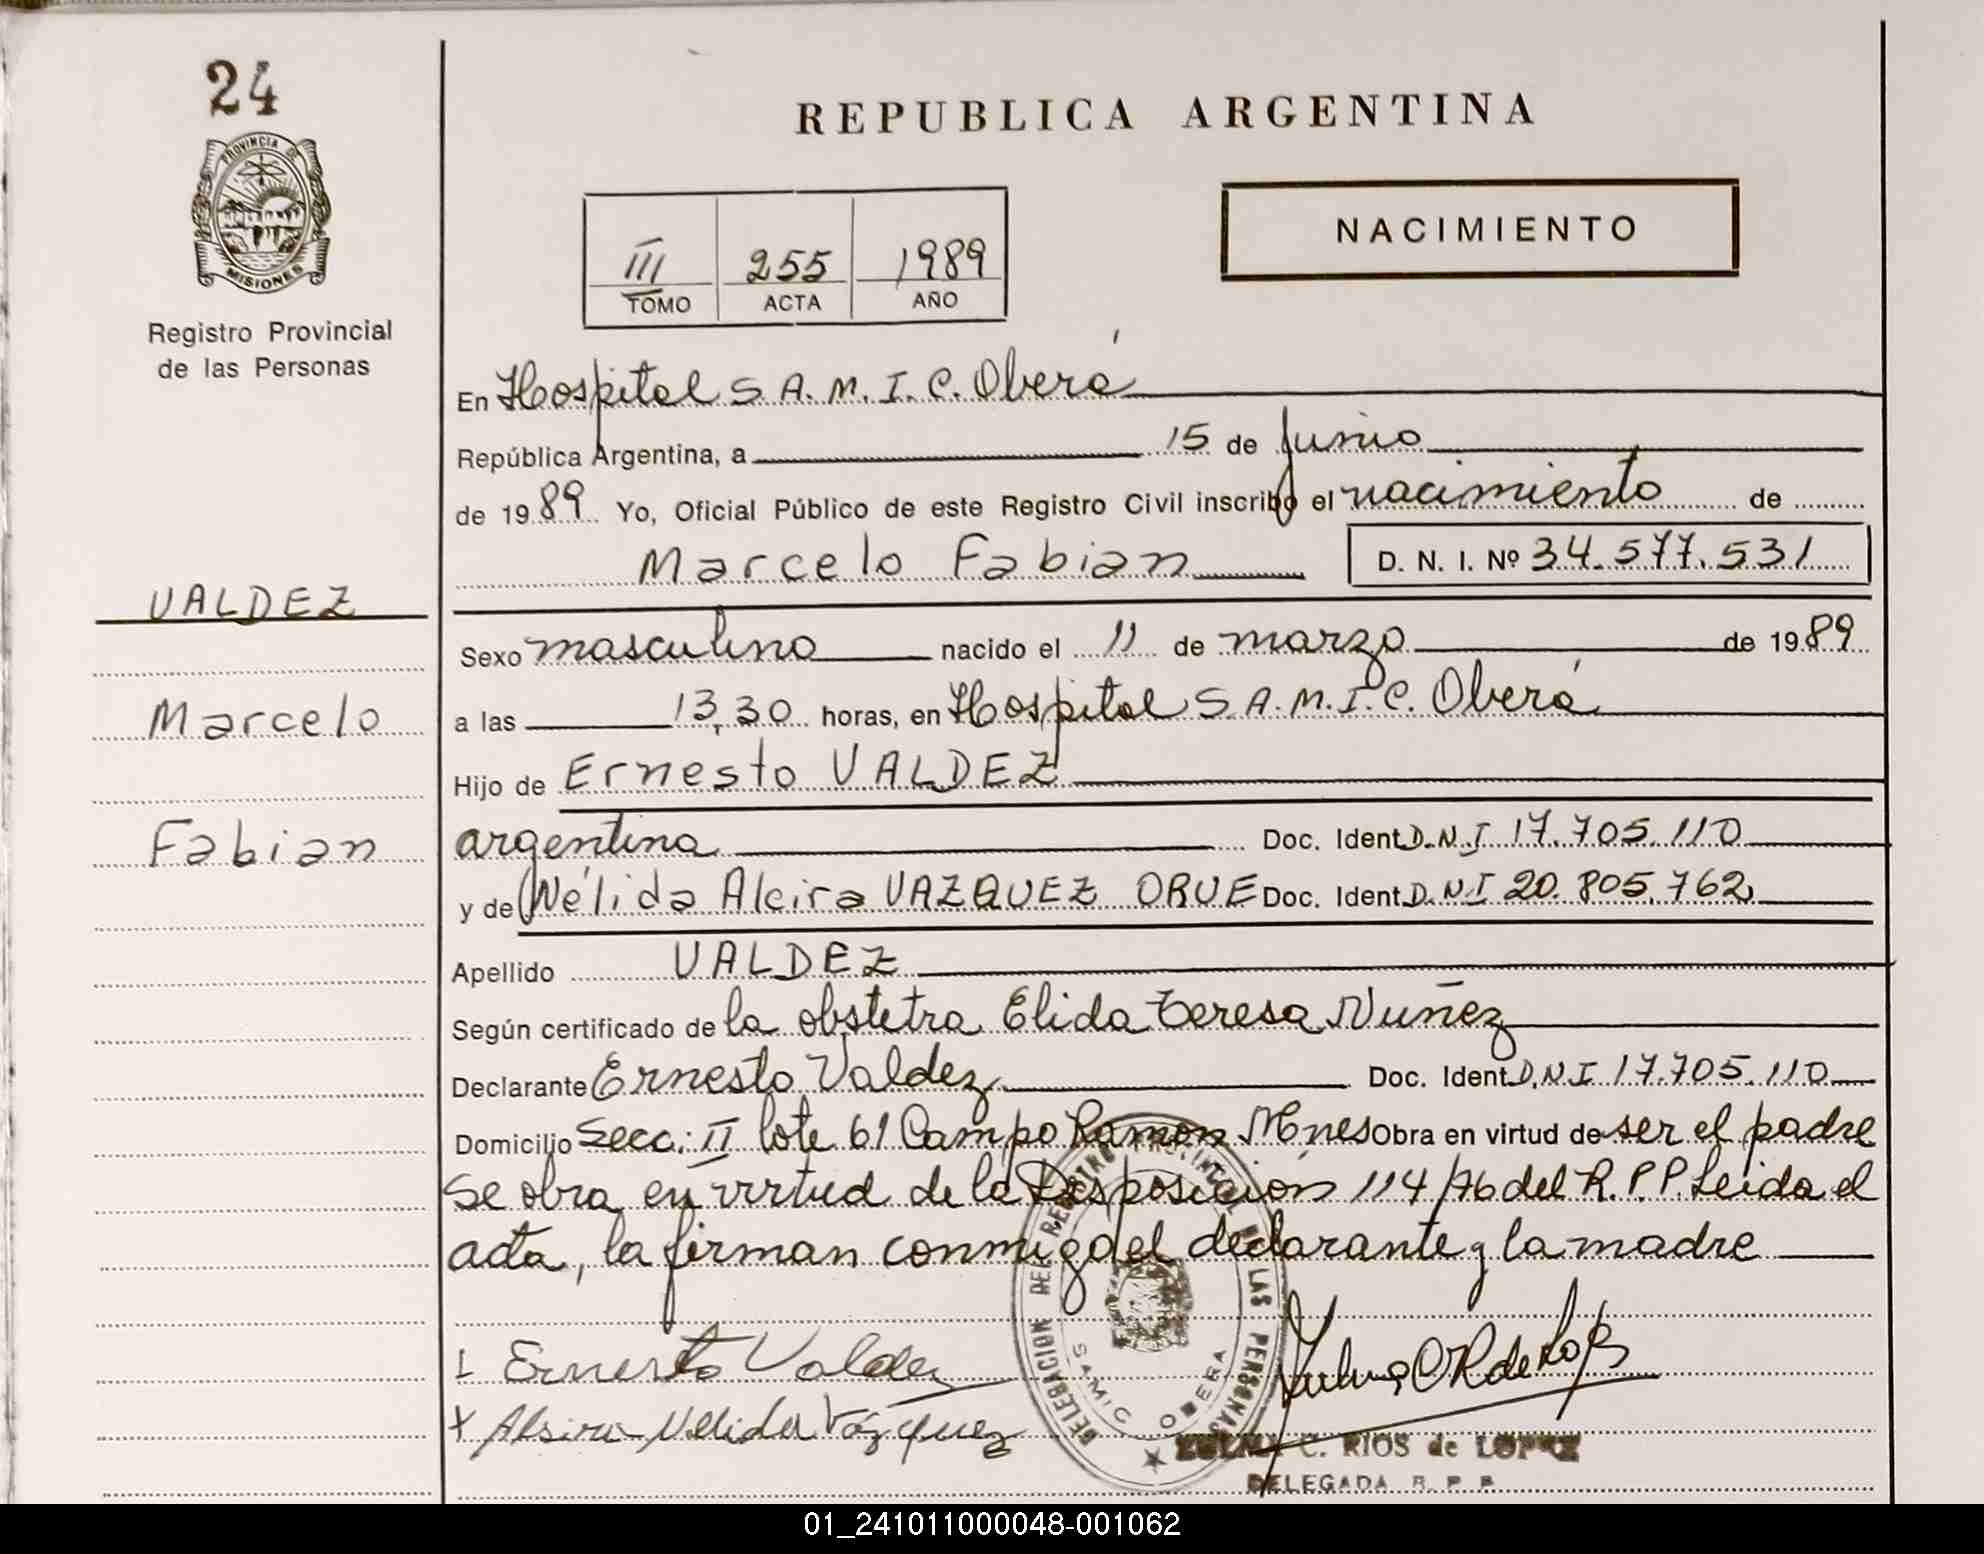 24
PROVINCIA DE
MISIONES
Registro Provincial
de las Personas
VALDEZ
Marcelo
Fabian
REPUBLICA ARGENTINA
III 255 1989
TOMO ACTA AÑO
NACIMIENTO
En Hospital S.A.M.I.C. Oberá
República Argentina, a 15 de Junio
de 1989 Yo, Oficial Público de este Registro Civil inscribo el nacimiento de
Marcelo Fabian D. N. I. Nº 34.577.531
Sexo masculino nacido el 11 de marzo de 1989
a las 13,30 horas, en Hospital S.A.M.I.C. Oberá
Hijo de Ernesto VALDEZ
argentina Doc. Ident D.N.I 17.705.110
y de Nélida Alcira VAZQUEZ ORUE Doc. Ident D.N.I 20.805.762
Apellido VALDEZ
Según certificado de la obstetra Elida Teresa Nuñez
Declarante Ernesto Valdez Doc. Ident D.N.I 17.705.110
Domicilio Secc: II lote 61 Campo Ramon Mnes Obra en virtud de ser el padre
Se obra en virtud de la Disposición 114/76 del R.P.P. Leida el
acta, la firman conmigo el declarante y la madre
Ernesto Valdez
Alsira Nelida Vázquez
DELEGACION DEL REGISTRO PROVINCIAL DE LAS PERSONAS
SAMIC OBERA
ZULMA C. RIOS de LOPEZ
DELEGADA R. P. P.
01_241011000048-001062